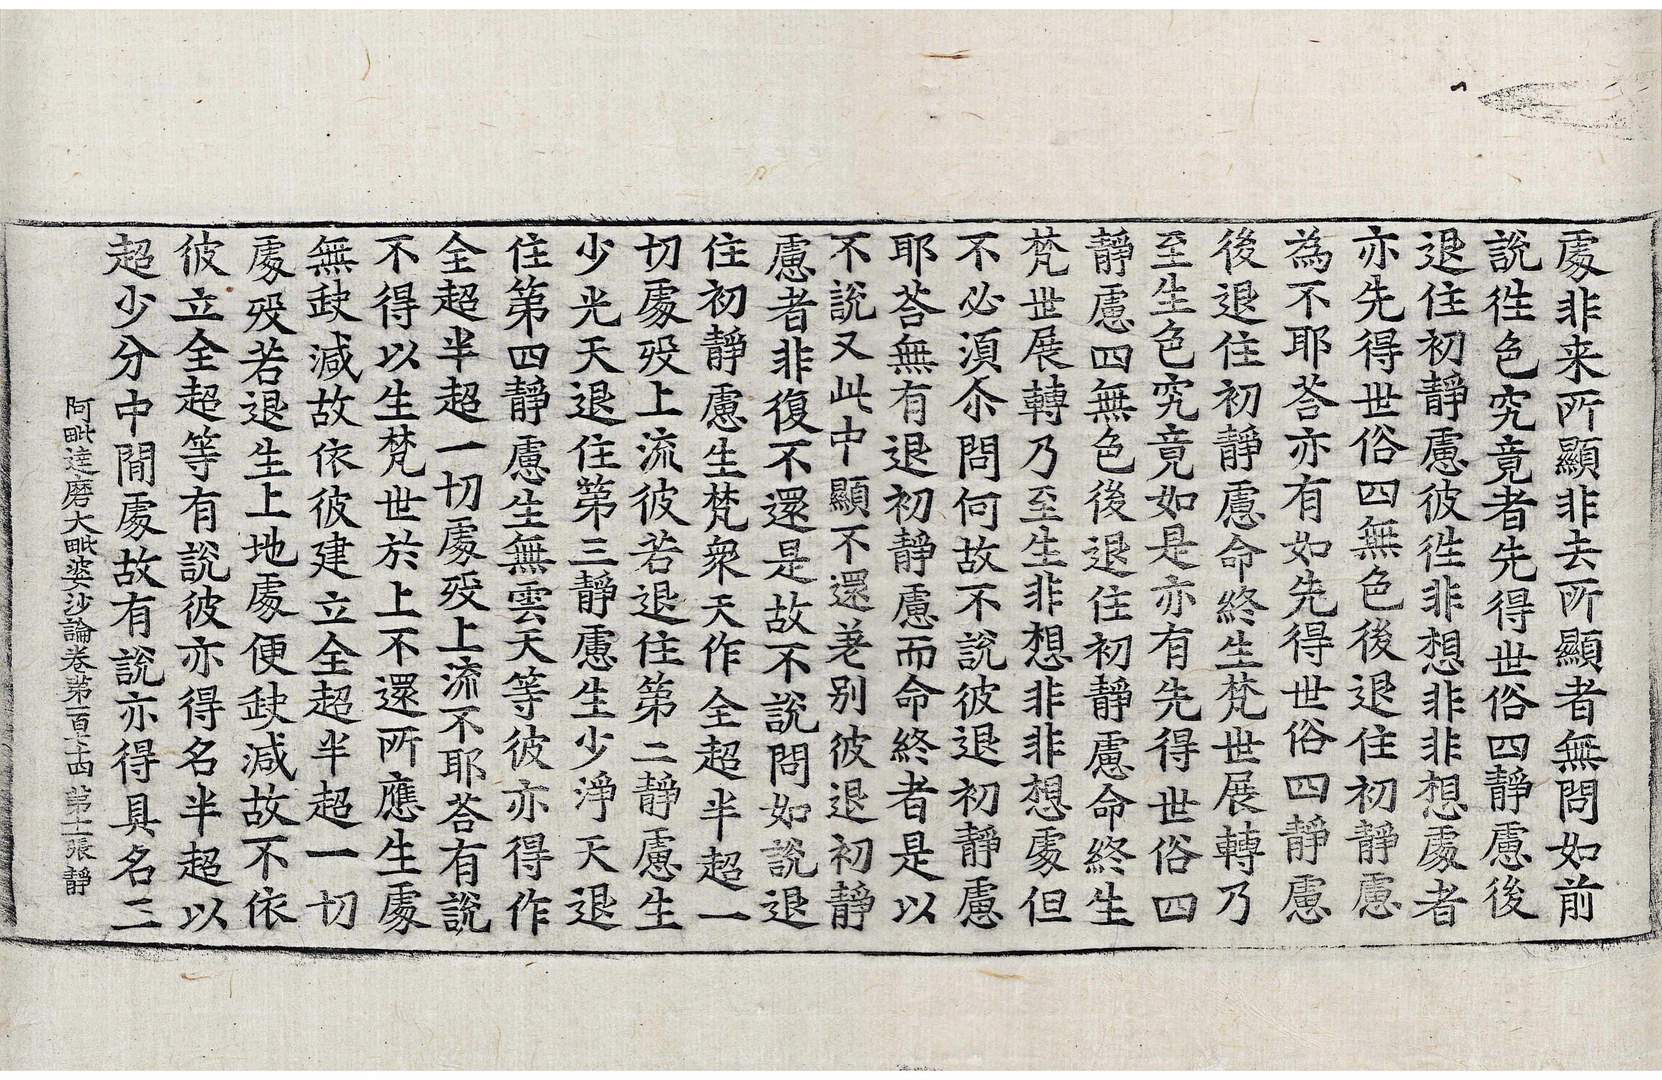 處非来所顯非去所顯者無問如前
說徃色究竟者先得世俗四靜慮後
退住初靜慮彼徃非想非非想處者
亦先得世俗四無色後退住初靜慮
為不耶荅亦有如先得世俗四靜慮
後退住初靜慮命終生梵世展轉乃
至生色究竟如是亦有先得世俗四
靜慮四無色後退住初靜慮命終生
梵世展轉乃至生非想非非想處但
不必湏尒問何故不說彼退初靜慮
耶荅無有退初靜慮而命終者是以
不說又此中顯不還差別彼退初靜
慮者非復不還是故不說問如說退
住初靜慮生梵衆天作全超半超一
切處歿上流彼若退住第二靜慮生
少光天退住第三靜慮生少淨天退
住第四靜慮生無雲天等彼亦得作
全超半超一切處歿上流不耶荅有說
不得以生梵世於上不還所應生處
無缺減故依彼建立全超半超一切
處歿若退生上地處便缺減故不依
彼立全超等有說彼亦得名半超以
超少分中閒處故有說亦得具名三
阿毗達磨大毗婆沙論卷第一百七十四 第十二張 靜